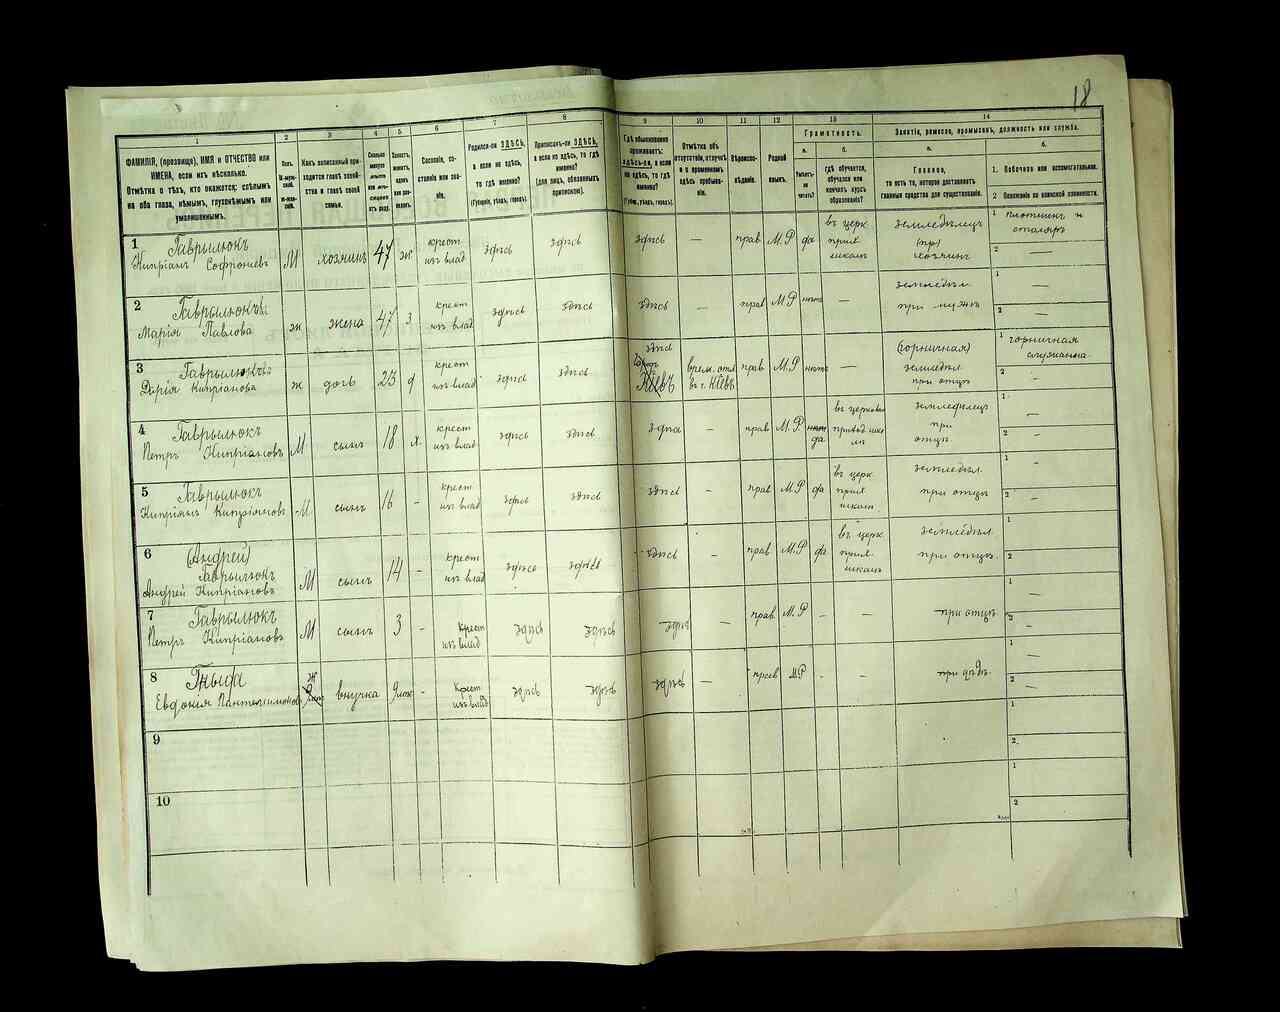 18
1
2
3
4
5
6
7
8
9
10
11
12
13
14
ФАМИЛІЯ, (прозвище), ИМЯ и ОТЧЕСТВО или
ИМЕНА, если ихъ нѣсколько.
Отмѣтка о тѣхъ, кто окажется: слѣпымъ
на оба глаза, нѣмымъ, глухонѣмымъ или
умалишеннымъ.
Полъ.
М-муж-
ской.
Ж-жен-
скій.
Какъ записанный при-
ходится главѣ хозяй-
ства и главѣ своей
семьи.
Сколько
минуло
лѣтъ
или мѣ-
сяцевъ
отъ роду.
Холостъ,
женатъ,
вдовъ
или раз-
веденъ.
Сословіе, со-
стояніе или зва-
ніе.
Родился-ли ЗДѢСЬ,
а если не здѣсь,
то гдѣ именно?
(Губернія, уѣздъ, городъ).
Приписанъ-ли ЗДѢСЬ,
а если не здѣсь, то гдѣ
именно?
(для лицъ, обязанныхъ
припиской).
Гдѣ обыкновенно
проживаетъ:
здѣсь-ли, а если
не здѣсь, то гдѣ
именно?
(Губерн., уѣздъ, городъ).
Отмѣтка объ
отсутствіи, отлучкѣ
и о временномъ
здѣсь пребыва-
ніи.
Вѣроиспо-
вѣданіе.
Родной
языкъ.
Грамотность.
а.
Умѣетъ-
ли
читать?
б.
гдѣ обучается,
обучался или
кончилъ курсъ
образованія?
Занятіе, ремесло, промыселъ, должность или служба.
а.
Главное,
то есть то, которое доставляетъ
главныя средства для существованія.
б.
1. Побочное или вспомогательное.
2 Положеніе по воинской повинности.
1
Гаврылюкъ
Кипріанъ Софроніевъ М хозяинъ 47 ж крест
изъ влад здѣсь здѣсь здѣсь — прав М.Р да въ церк
прих
школѣ земледѣлецъ
(пр)
хозяинъ 1 плотникъ и
столяръ
2 —
2
Гаврылюкъ
Марія Павлова ж жена 47 з крест
изъ влад здѣсь здѣсь здѣсь — прав М.Р нѣтъ — земледѣл.
при мужѣ 1 —
2 —
3
Гаврылюкъ
Дарія Кипріанова ж дочь 23 д крест
изъ влад здѣсь здѣсь здѣсь
Кіевъ врем. отл
въ г. Кіевъ прав М.Р нѣтъ — (горничная)
земледѣл
при отцѣ 1 горничная
служанка
2 —
4
Гаврылюкъ
Петръ Кипріановъ М сынъ 18 х. крест
изъ влад здѣсь здѣсь здѣсь — прав М.Р. нѣтъ
да въ церковно
приход шко
лѣ земледѣлецъ
при
отцѣ. 1 —
2 —
5
Гаврылюкъ
Кипріанъ Кипріановъ М сынъ 16 - крест
изъ влад здѣсь здѣсь здѣсь - прав М.Р да въ церк
прих
школѣ. земледѣл.
при отцѣ 1 —
2 —
6
(Андрей)
Гаврылюкъ
Андрей Кипріановъ М сынъ 14 - крест
изъ влад здѣсь здѣсь здѣсь - прав М.Р да въ церк
прих.
школѣ земледѣл
при отцѣ. 1 —
2 —
7
Гаврылюкъ
Петръ Кипріановъ М сынъ 3 - Крест
изъ влад здѣсь здѣсь здѣсь — прав М.Р - — при отцѣ 1 —
2 —
8
Гныда
Евдокія Пантелеимонова ж внучка 9 мѣс - Крест
изъ влад здѣсь здѣсь здѣсь — прав М.Р - - при дѣдѣ 1 —
2 —
9
1
2.
10
1
2